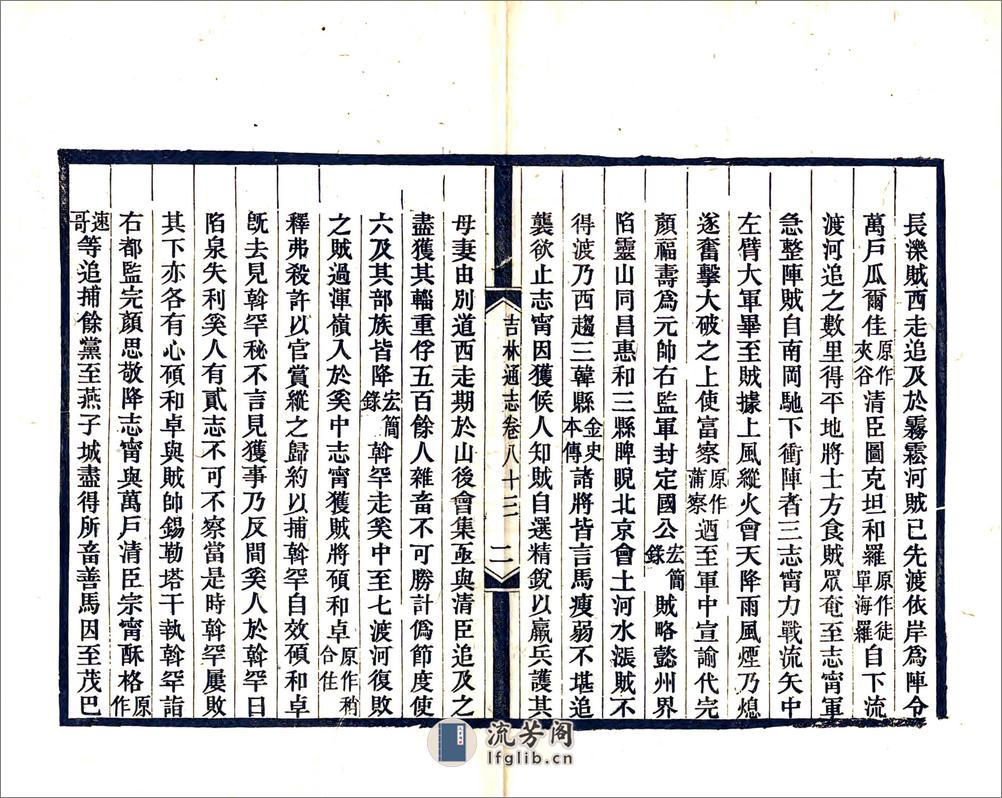 長濼賊西走追及於霧霿河賊已先渡依岸爲陣令
萬戶瓜爾佳原作夾谷清臣圖克坦和羅原作徒單海羅自下流
渡河追之數里得平地將士方食賊眾奄至志甯軍
急整陣賊自南岡馳下衝陣者三志甯力戰流矢中
左臂大軍畢至賊據上風縱火會天降雨風煙乃熄
遂奮擊大破之上使富察原作蒲察迺至軍中宣諭代完
顏福壽爲元帥右監軍封定國公宏簡錄賊略懿州界
陷靈山同昌惠和三縣睥睨北京會土河水漲賊不
得渡乃西趨三韓縣金史本傳諸將皆言馬瘦弱不堪追
襲欲止志甯因獲候人知賊自選精銳以羸兵護其
吉林通志卷八十三 二
母妻由別道西走期於山後會集亟與清臣追及之
盡獲其輜重俘五百餘人雜畜不可勝計僞節度使
六及其部族皆降宏簡錄斡罕走奚中至七渡河復敗
之賊過渾嶺入於奚中志甯獲賊將碩和卓原作稍合住
釋弗殺許以官賞縱之歸約以捕斡罕自效碩和卓
旣去見斡罕秘不言見獲事乃反間奚人於斡罕曰
陷泉失利奚人有貳志不可不察當是時斡罕屢敗
其下亦各有心碩和卓與賊帥錫勒塔干執斡罕詣
右都監完顏思敬降志甯與萬戶清臣宗甯酥格原作
速哥等追捕餘黨至燕子城盡得所畜善馬因至茂巴
流芳阁
lfglib.cn